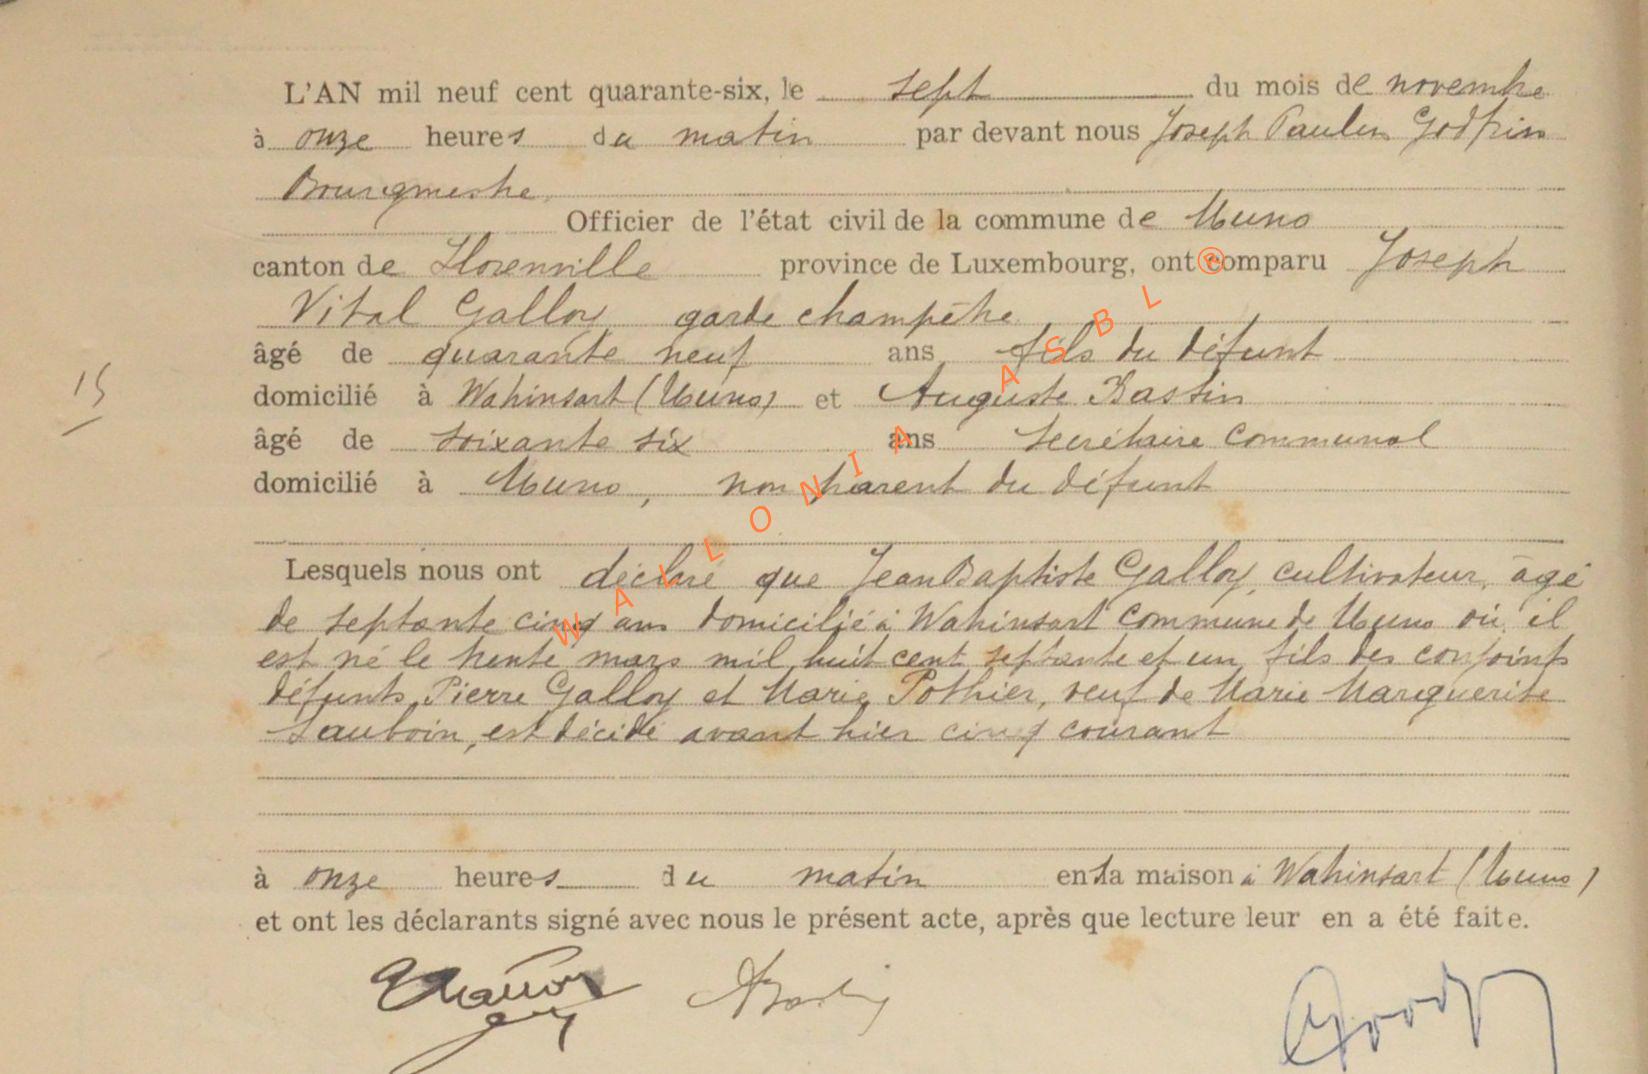 L'AN mil neuf cent quarante-six, le sept du mois de novembre
à onze heures du matin par devant nous Joseph Paulin Godfrin
Bourgmestre
Officier de l'état civil de la commune de Muno
canton de Florenville province de Luxembourg, ont comparu Joseph
Vital Galloy garde champêtre
âgé de quarante neuf ans fils du défunt
15
domicilié à Wahinsart (Muno) et Auguste Bastin
âgé de soixante six ans secrétaire communal
domicilié à Muno, non parent du défunt
Lesquels nous ont déclaré que Jean Baptiste Galloy, cultivateur, âgé
de septante cinq ans domicilié à Wahinsart commune de Muno où il
est né le trente mars mil huit cent septante et un, fils des conjoints
défunts Pierre Galloy et Marie Pothier, veuf de Marie Marguerite
Lauboin, est décédé avant hier cinq courant
à onze heures du matin en sa maison à Wahinsart (Muno)
et ont les déclarants signé avec nous le présent acte, après que lecture leur en a été faite.
ABastin
WALLONIA ASBL ®